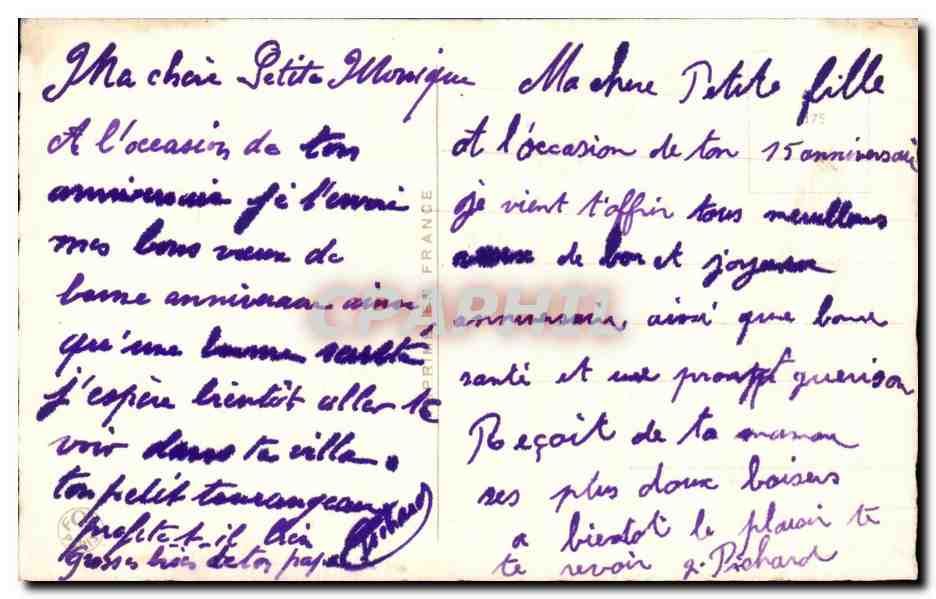 Ma chère Petite Monique
A l'occasion de ton
anniversaire je t'envoie
mes bons vœux de
bonne anniversaire ainsi
qu'une bonne santé
j'espère bientôt aller te
voir dans ta villa.
ton petit tourangeaux
profite-t-il bien
grosses bises de ton papa
Pichard
Ma chere Petite fille
A l'occasion de ton 15 anniversaire
je vient t'offrir tous meuilleurs
de bon et joyeux
anniversaire, ainsi que bonne
santé et une prompt guerison
Reçoit de ta maman
ses plus doux baisers
a bientot le plaisir te
te revoir g. Pichard
FRANCE
CPAPHIL